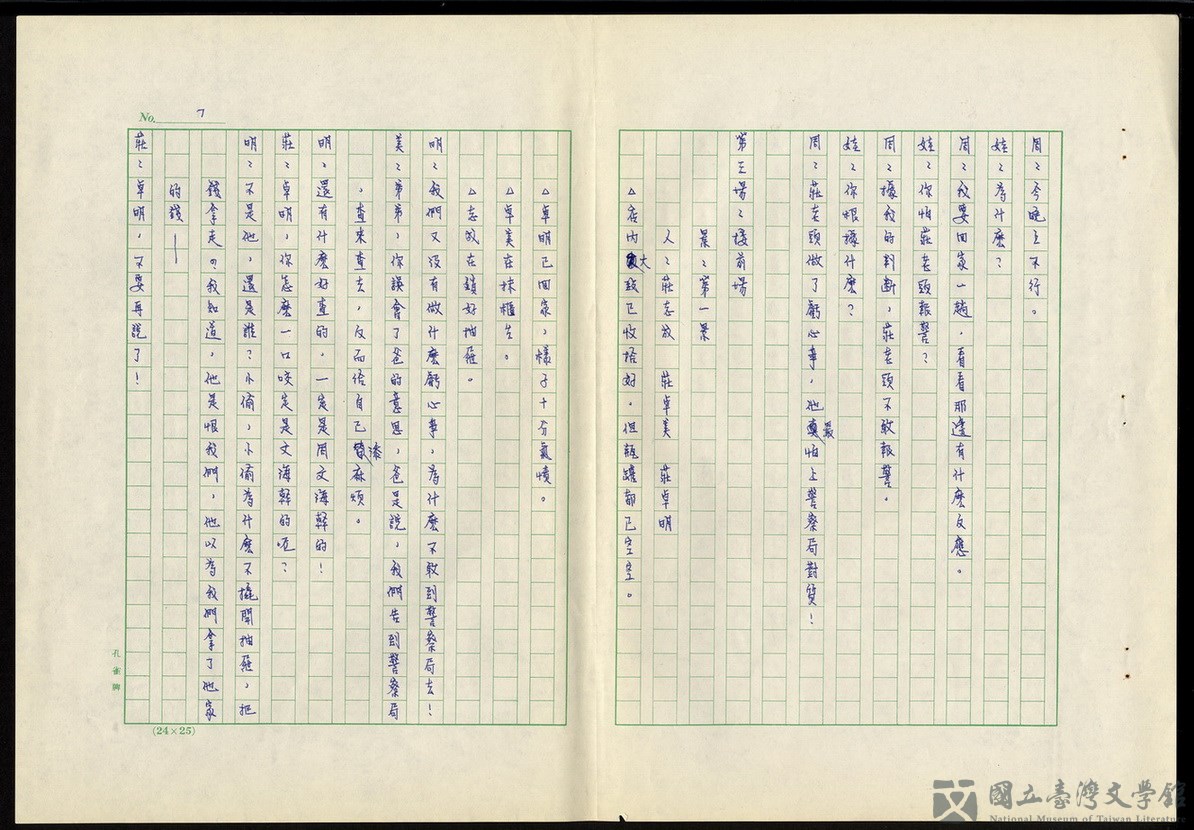 周：今晚上不行。
娃：為什麽？
周：我要回家一趟，看看那邊有什麽反應。
娃：你怕莊老頭報警？
周：據我的判斷，莊老頭不敢報警。
娃：你根據什麽？
周：莊老頭做了虧心事，他最怕上警察局對質！
第三場：接前場
景：第一景
人：莊志放 莊卓美 莊卓明
△店內大致已收拾好。但
都已空空。
△卓明已回家，樣子十分氣憤。
△卓美在抹櫃台。
△志放在鎖好抽屜。
明：我們又沒有做什麽虧心事，為什麽不敢到警察局去！
美：弟弟，你誤會了爸的意思，爸是說，我們告到警察局
，查來查去，反而給自己添麻煩。
明：還有什麽好查的，一定是周文海幹的！
莊：卓明，你怎麽一口咬定是文海幹的呢？
明：不是他，還是誰？小偷，小偷為什麽不撬開抽屜，把
錢拿走？我知道，他是恨我們，他以為我們拿了他家
的錢——
莊：卓明，不要再說了！
No. 7
(24×25)
孔雀牌
國立臺灣文學館
National Museum of Taiwan Literature